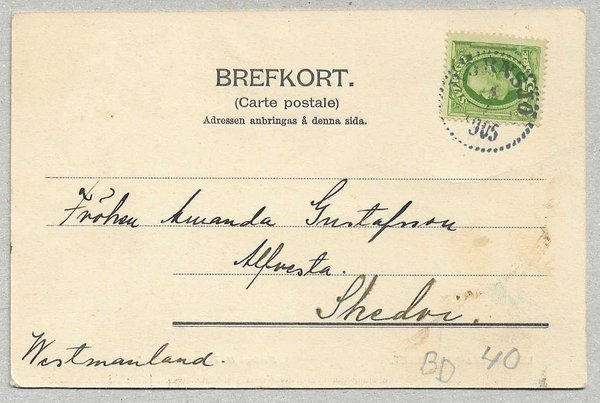 BREFKORT.
(Carte postale)
Adressen anbringas å denna sida.
1905
Fröken Amanda Gustafsson
Alfvesta.
Skedvi.
Westmanland.
BD 40